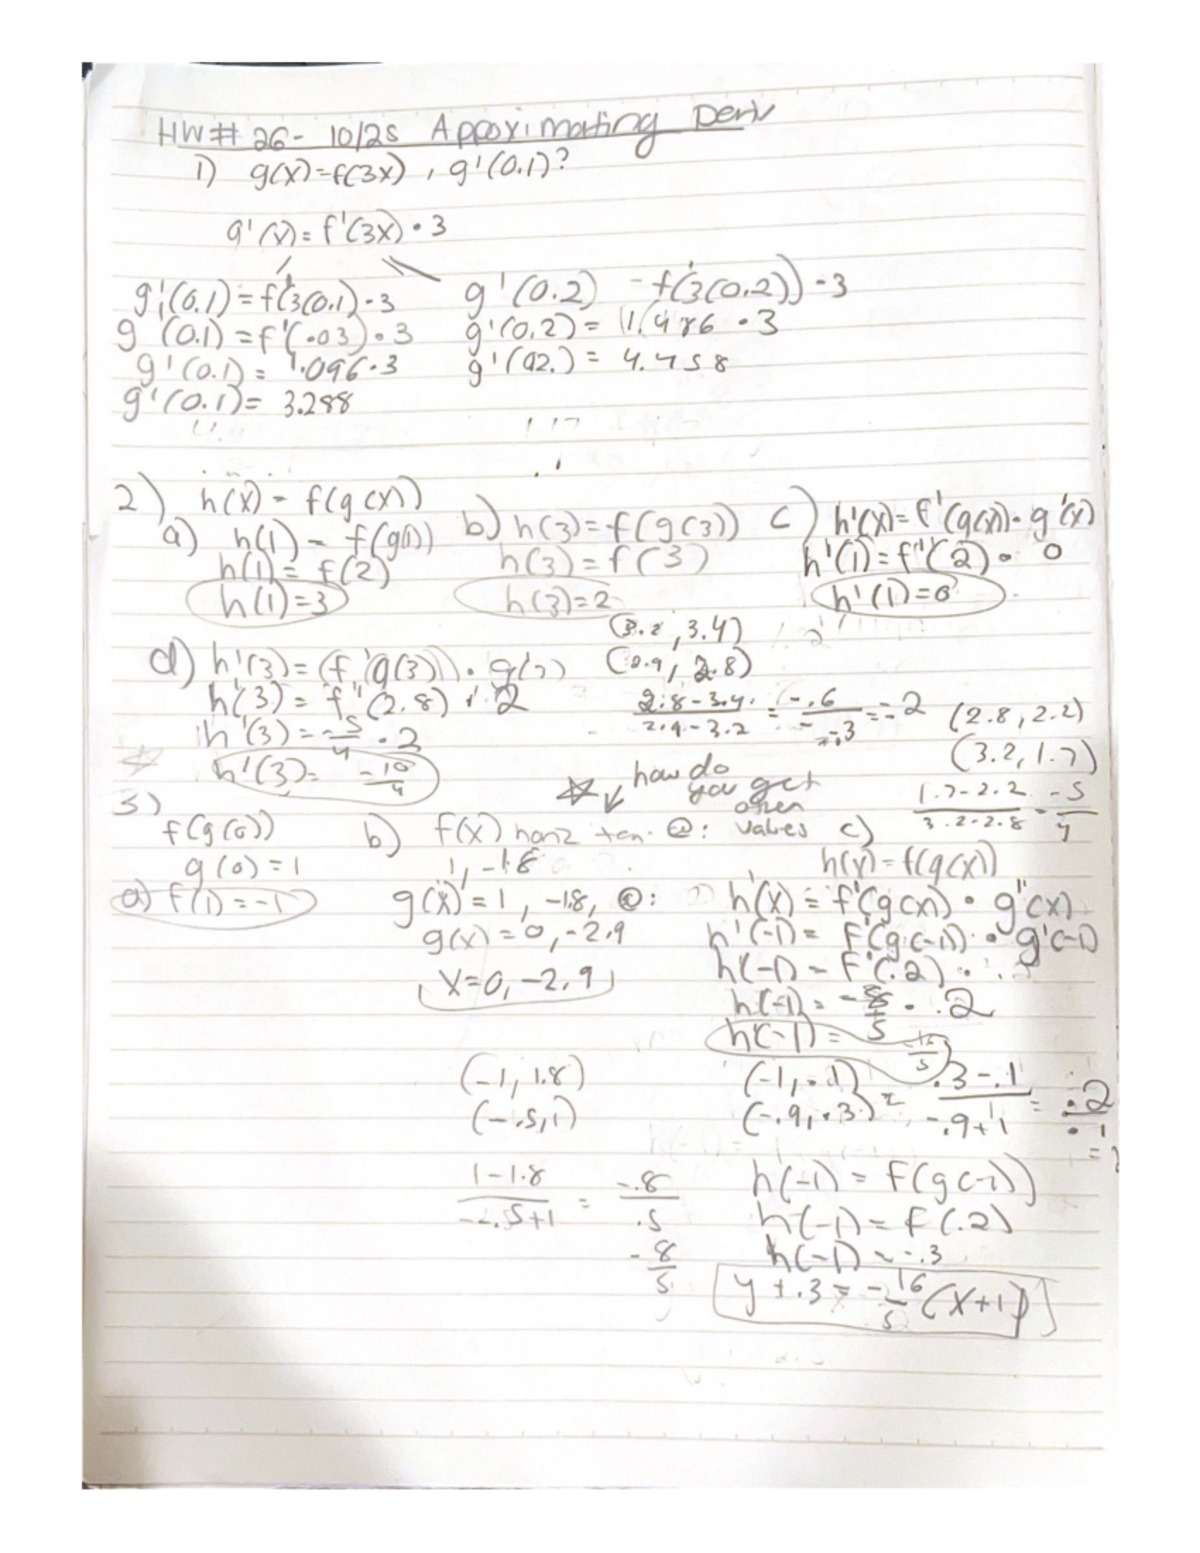 HW# 26- 10/25 Approximating Deriv
1) g(x)=f(3x) , g'(0.1)?
g'(x)= f'(3x)·3
g'(0.1)=f'(3(0.1)·3
g'(0.1)=f'(.03)·3
g'(0.1)= 1.096·3
g'(0.1)= 3.288
g'(0.2) = f'(3(0.2))·3
g'(0.2)= 1.486 ·3
g'(02.) = 4.458
2) h(x) = f(g(x))
a) h(1) = f(g(1))
h(1)= f(2)
h(1)=3
b) h(3)=f(g(3))
h(3)=f(3)
h(3)=2
c) h'(x)=f'(g(x))·g'(x)
h'(1)=f'(2)· 0
h'(1)=0
d) h'(3)=(f'(g(3))·g'(3)
h'(3)= f'(2.8) · 2
h'(3)=-5/4 ·2
h'(3)= -10/4
(3.2,3.4)
(2.9, 2.8)
2.8-3.4/2.9-3.2 = -.6/-.3 = 2
(2.8,2.2)
(3.2,1.7)
1.7-2.2/3.2-2.8 = -5/4
how do
you get
other
values
3)
f(g(0))
g(0)=1
a) f(1)=-1
b) f(x) horiz tan. @:
1,-1.8
g(x)=1, -1.8, @:
g(x)=0,-2.9
x=0,-2.9
c)
h(x)=f(g(x))
h'(x)= f'(g(x))·g'(x)
h'(-1)= f'(g(-1))·g'(-1)
h(-1)= f'(.2)·
h(-1)= -8/5 · .2
h(-1)= -16/5
(-1, 1.8)
(-.5,1)
1-1.8/-.5+1 = -.8/.5
-8/5
(-1, .1)
(-.9, .3)
.3-.1/-.9+1 = .2/.1
h(-1)= f(g(-1))
h(-1)=f(.2)
h(-1)=-.3
y+.3=-16/5(x+1)